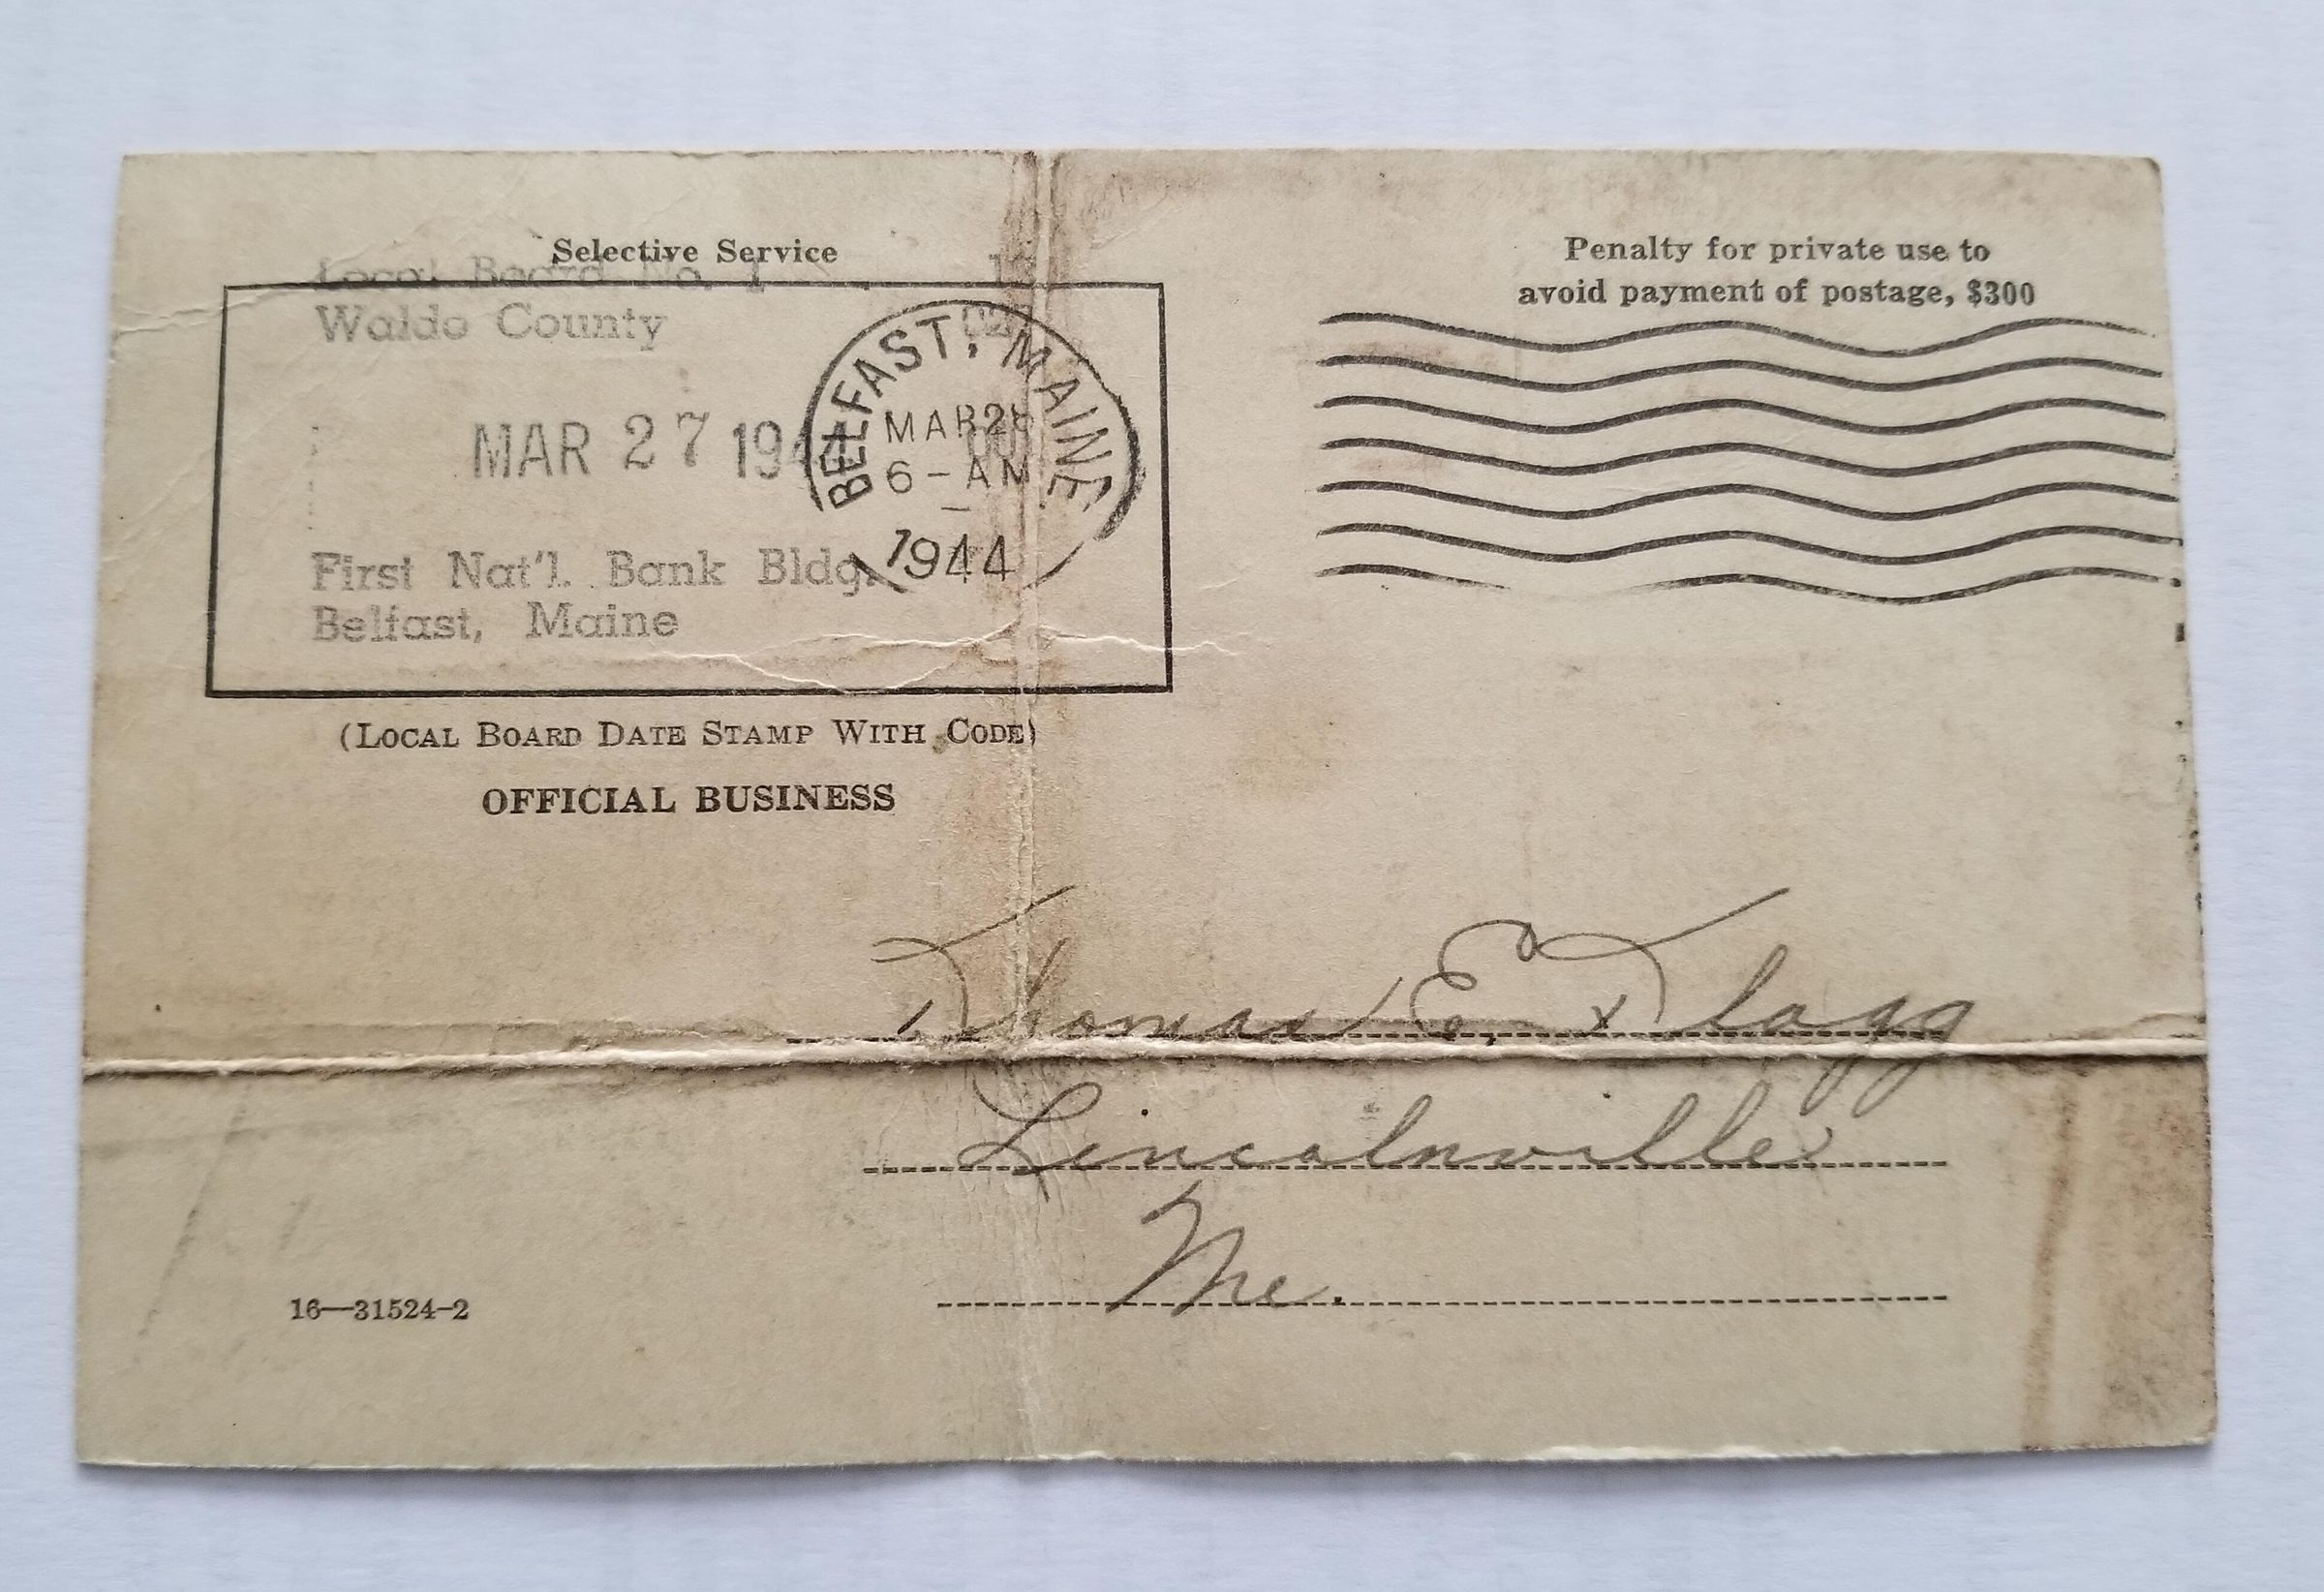 Selective Service
Local Board No. 1
Waldo County
MAR 27 194
First Nat'l. Bank Bldg.
Belfast, Maine
BELFAST, MAINE
MAR 28
6-AM
1944
(LOCAL BOARD DATE STAMP WITH CODE)
OFFICIAL BUSINESS
Penalty for private use to
avoid payment of postage, $300
Thomas E. Flagg
Lincolnville
Me.
16—31524-2